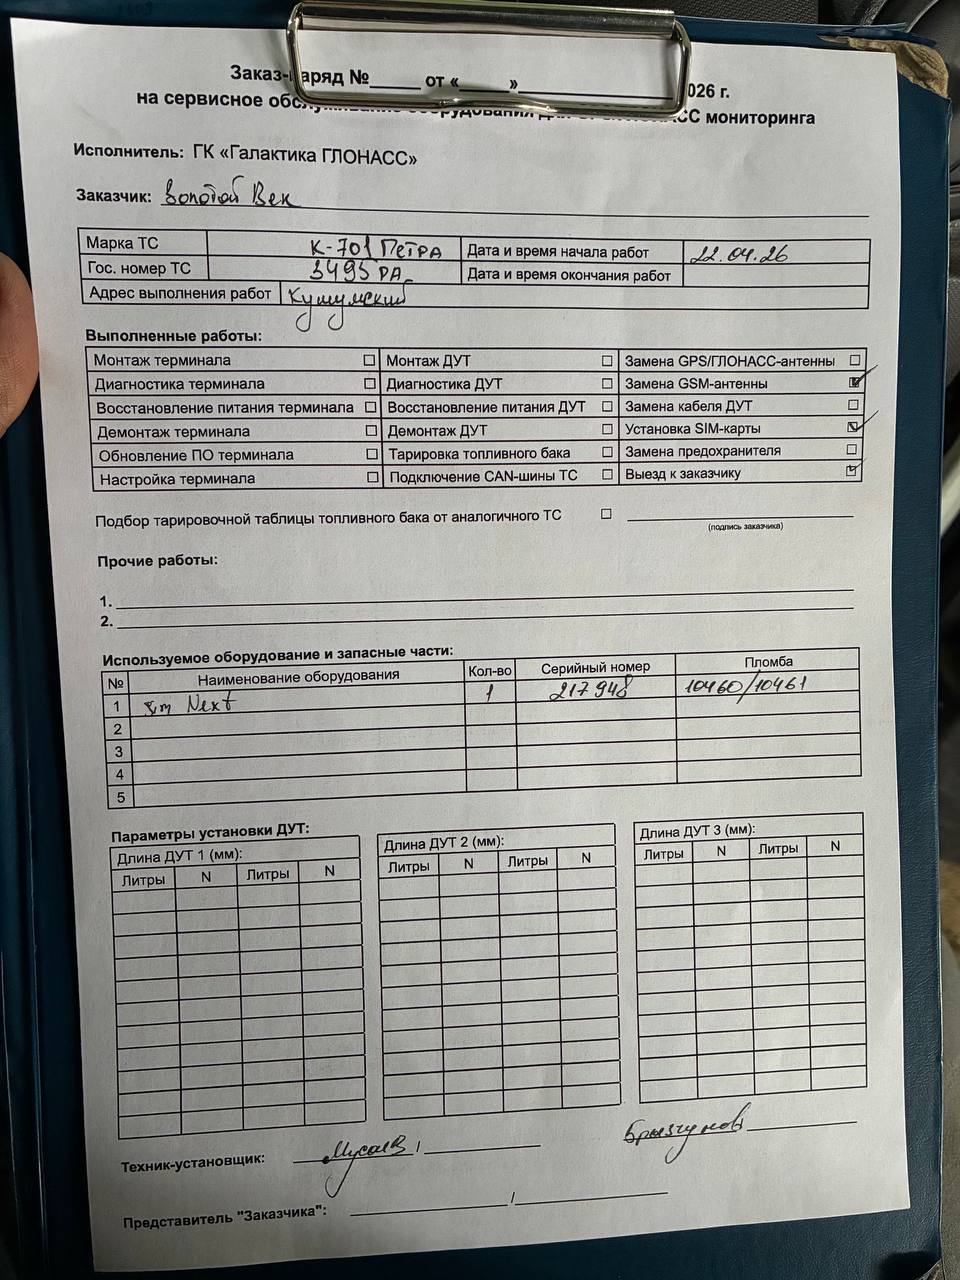 Заказ-наряд №_____ от «_____»________________026 г.
на сервисное обслуживание оборудования для ГЛОНАСС мониторинга
Исполнитель: ГК «Галактика ГЛОНАСС»
Заказчик: Золотой Век
Марка ТС К-701 Петра Дата и время начала работ 22.04.26
Гос. номер ТС 3493 РА Дата и время окончания работ
Адрес выполнения работ Кушумский
Выполненные работы:
Монтаж терминала ☐ Монтаж ДУТ ☐ Замена GPS/ГЛОНАСС-антенны ☐
Диагностика терминала ☐ Диагностика ДУТ ☐ Замена GSM-антенны ☑
Восстановление питания терминала ☐ Восстановление питания ДУТ ☐ Замена кабеля ДУТ ☐
Демонтаж терминала ☐ Демонтаж ДУТ ☐ Установка SIM-карты ☑
Обновление ПО терминала ☐ Тарировка топливного бака ☐ Замена предохранителя ☐
Настройка терминала ☐ Подключение CAN-шины ТС ☐ Выезд к заказчику ☑
Подбор тарировочной таблицы топливного бака от аналогичного ТС ☐
(подпись заказчика)
Прочие работы:
1.
2.
Используемое оборудование и запасные части:
№ Наименование оборудования Кол-во Серийный номер Пломба
1 Next 1 217948 10460/10461
2
3
4
5
Параметры установки ДУТ:
Длина ДУТ 1 (мм): Длина ДУТ 2 (мм): Длина ДУТ 3 (мм):
Литры N Литры N Литры N Литры N Литры N Литры N
Техник-установщик: Мусаев / Брызгунов
Представитель "Заказчика": /